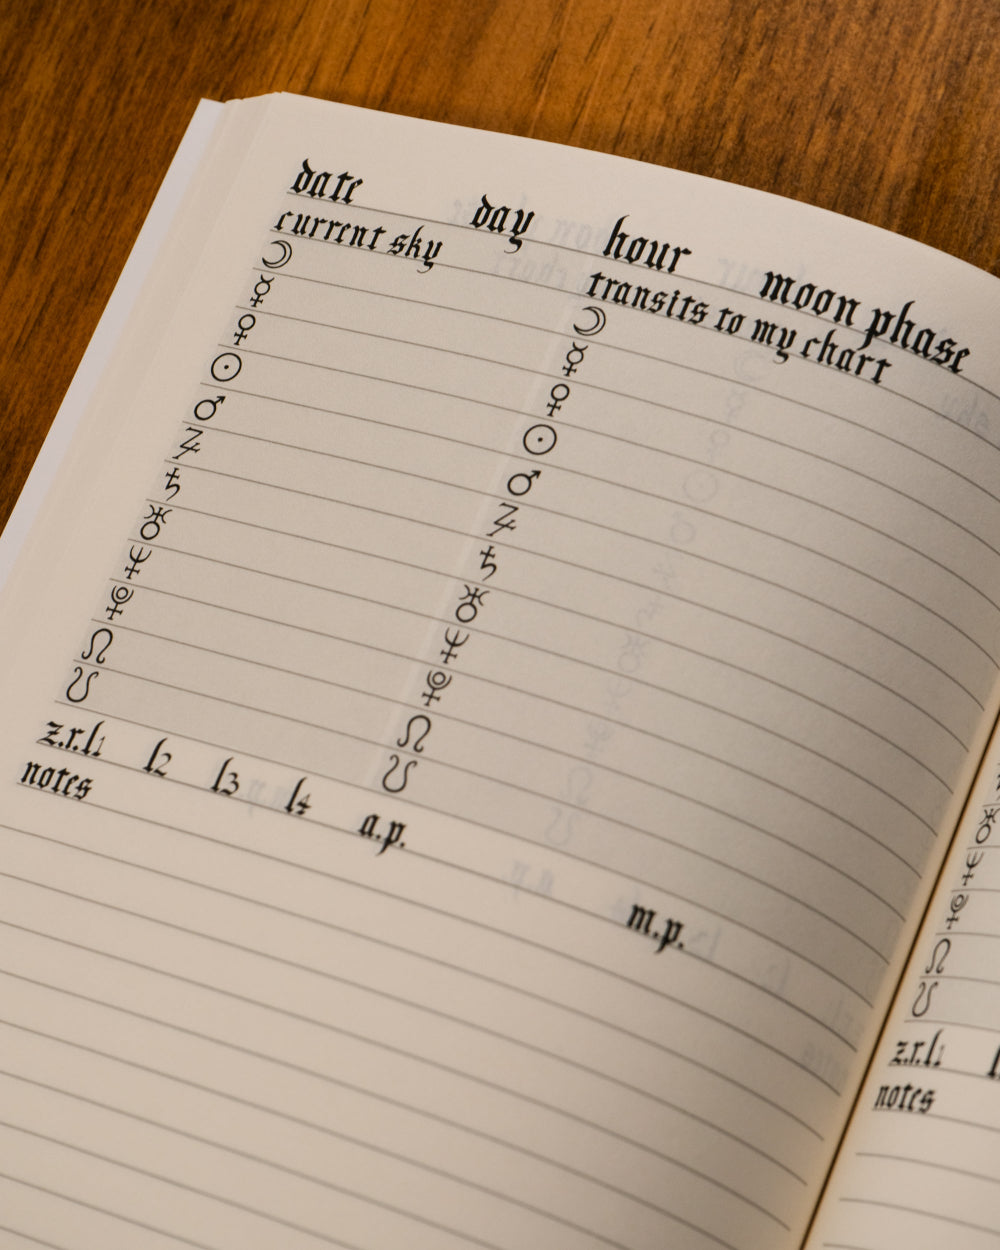 date day hour moon phase
current sky transits to my chart
☽ ☽
☿ ☿
♀ ♀
☉ ☉
♂ ♂
♃ ♃
♄ ♄
♅ ♅
♆ ♆
⯓ ⯓
☊ ☊
☋ ☋
z.r.l1 l2 l3 l4 a.p. m.p.
notes
♅
♆
⯓
☊
☋
z.r.l1
notes